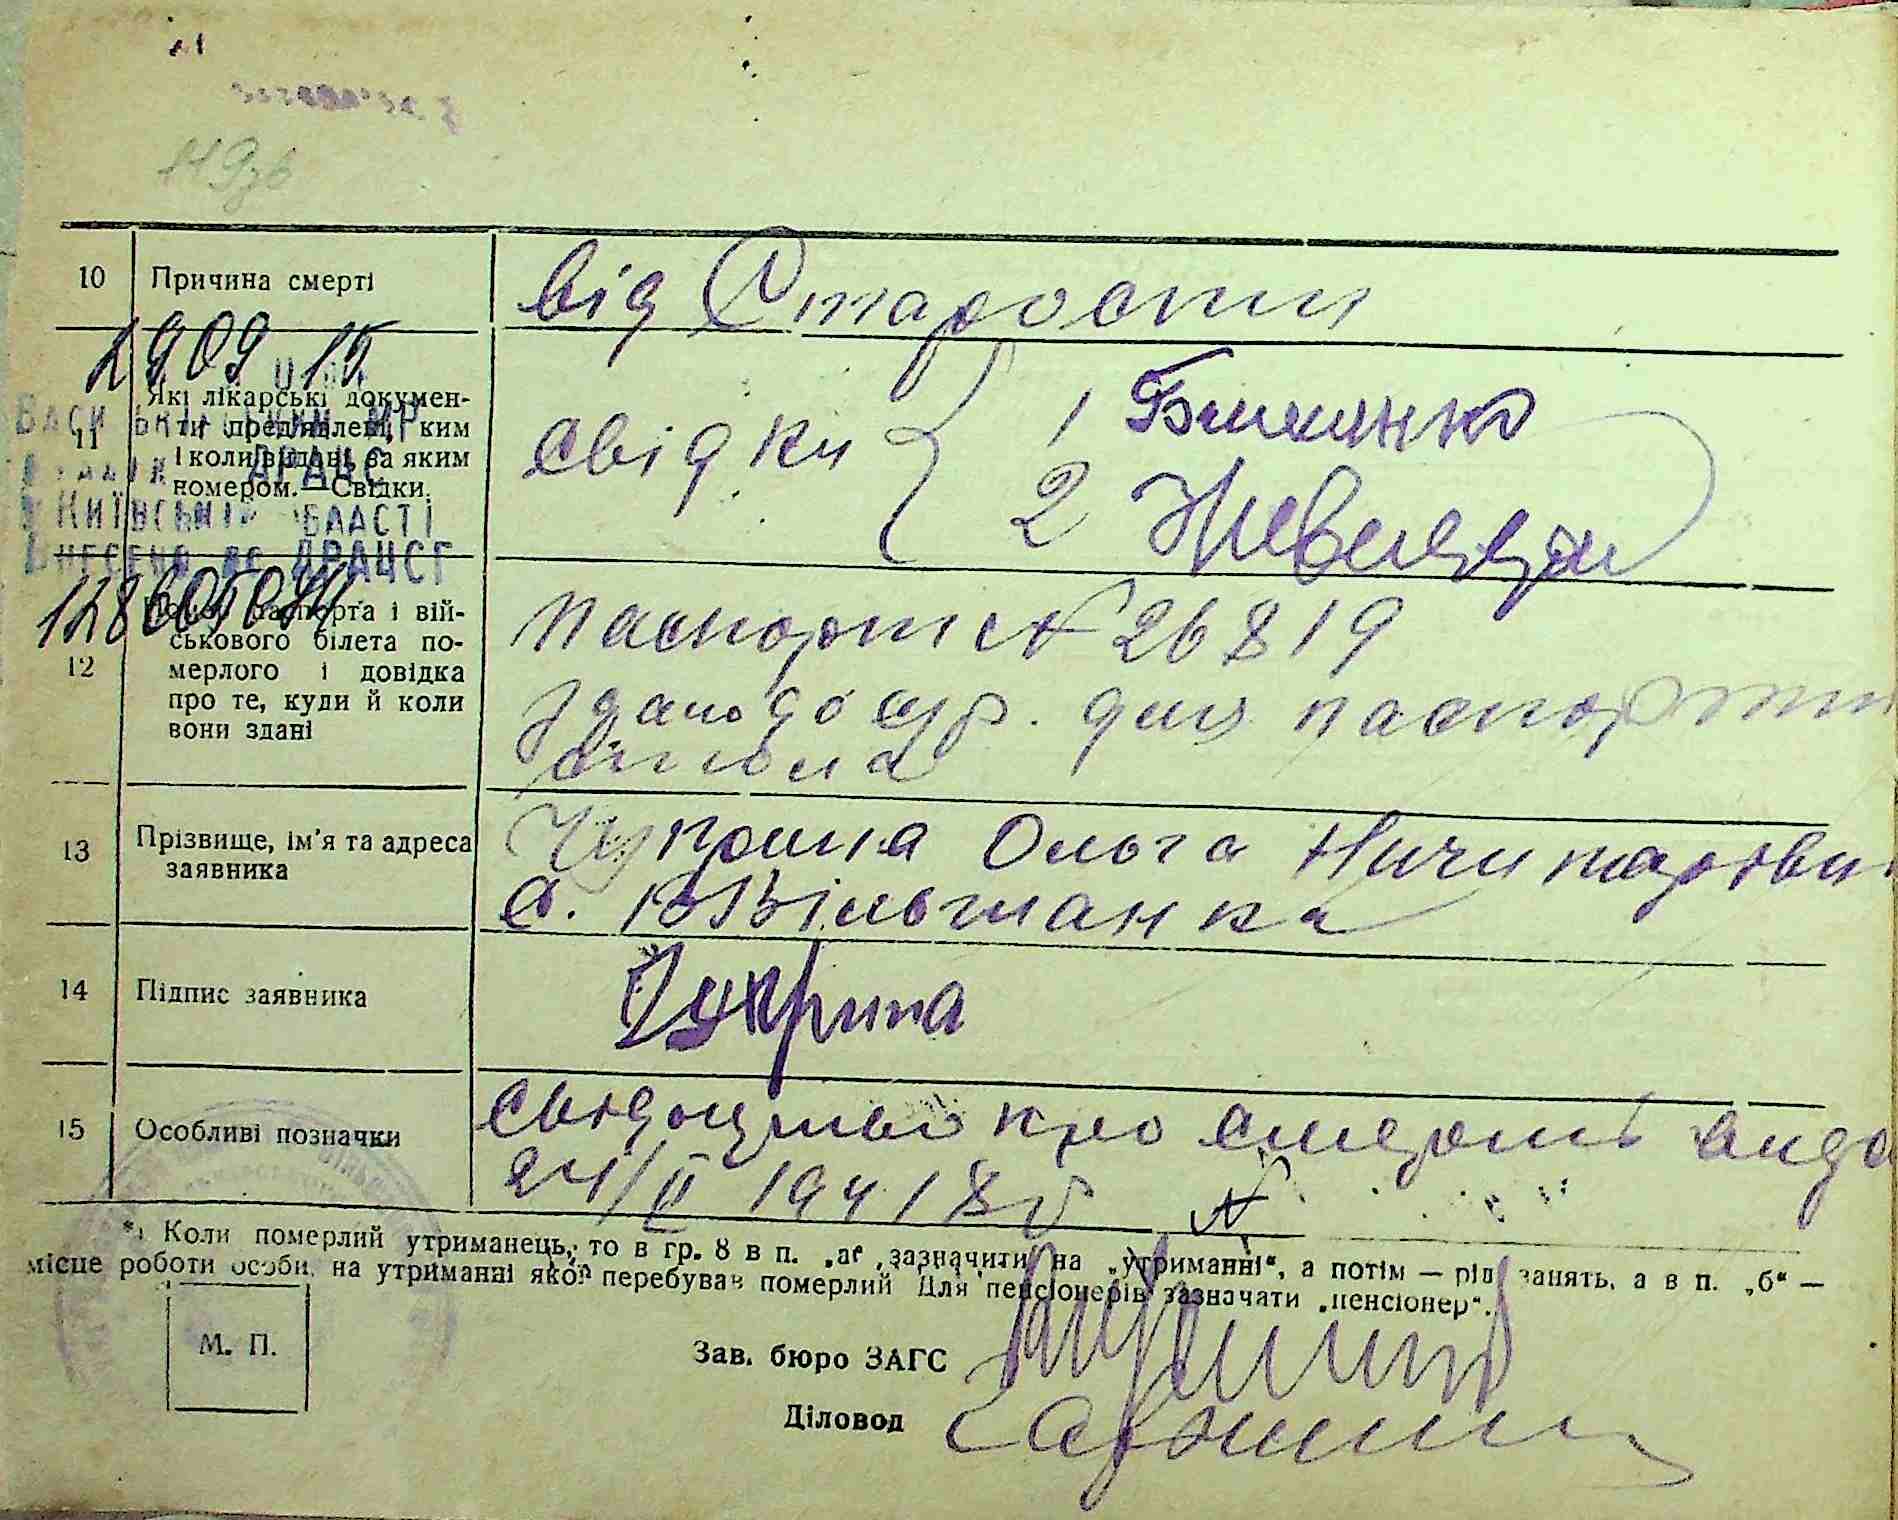 10 Причина смерті від Старости
2909 15
11 Які лікарські докумен-
ти пред'явлені, ким
і коли видані за яким
номером.—Свідки.
свідки 1
2
Київській області
Внесено до ДРАЦСГ
12 Номер паспорта і вій-
ськового білета по-
мерлого і довідка
про те, куди й коли
вони здані
Паспорт № 26819
здано до для паспорт
стола
13 Прізвище, ім'я та адреса
заявника
Чуприна Ольга Ничипоровн
с. ВВільшанка
14 Підпис заявника Чуприна
15 Особливі позначки
свідоцтво про смерть вида
24/II 1941 №
*) Коли померлий утриманець, то в гр. 8 в п. „а" зазначити „на утриманні", а потім — рід занять, а в п. „б" —
місце роботи особи, на утриманні якої перебував померлий Для пенсіонерів зазначати „пенсіонер".
М. П.
Зав. бюро ЗАГС
Діловод